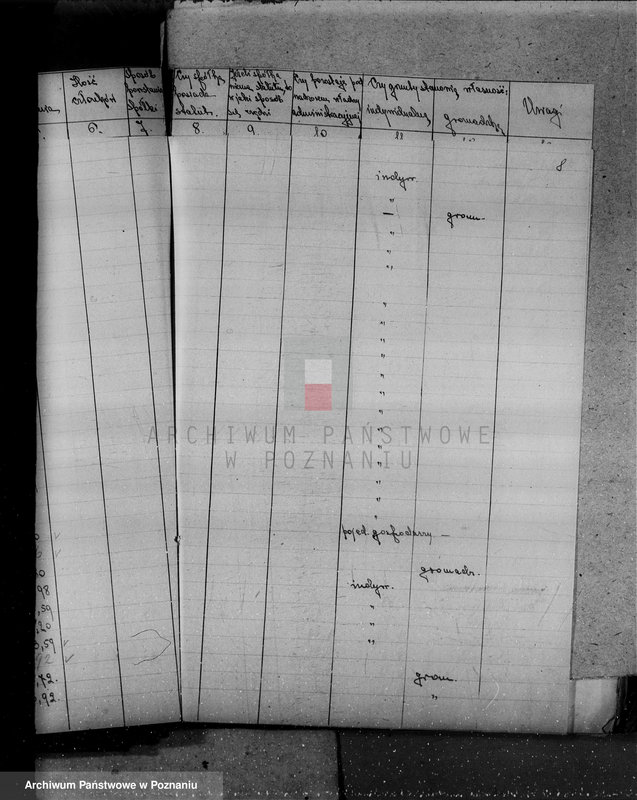 Ilość członków
Sposób powstania Spółki
Czy spółka posiada statut.
Jeżeli spółka niema statutu to w jaki sposób się rządzi
Czy pozostaje pod nadzorem władzy administracyjnej
Czy grunty stanowią własność:
indywidualną
gromadzką
Uwagi
6. 7. 8. 9. 10 11 " "
8
indyw.
"
— grom.
"
"
"
"
"
"
"
"
"
"
"
"
"
"
pojed. gospodarzy —
gromadz.
indyw.
98
,50 "
"
,59 "
,72 grom.
,92 "
ARCHIWUM PAŃSTWOWE
W POZNANIU
Archiwum Państwowe w Poznaniu